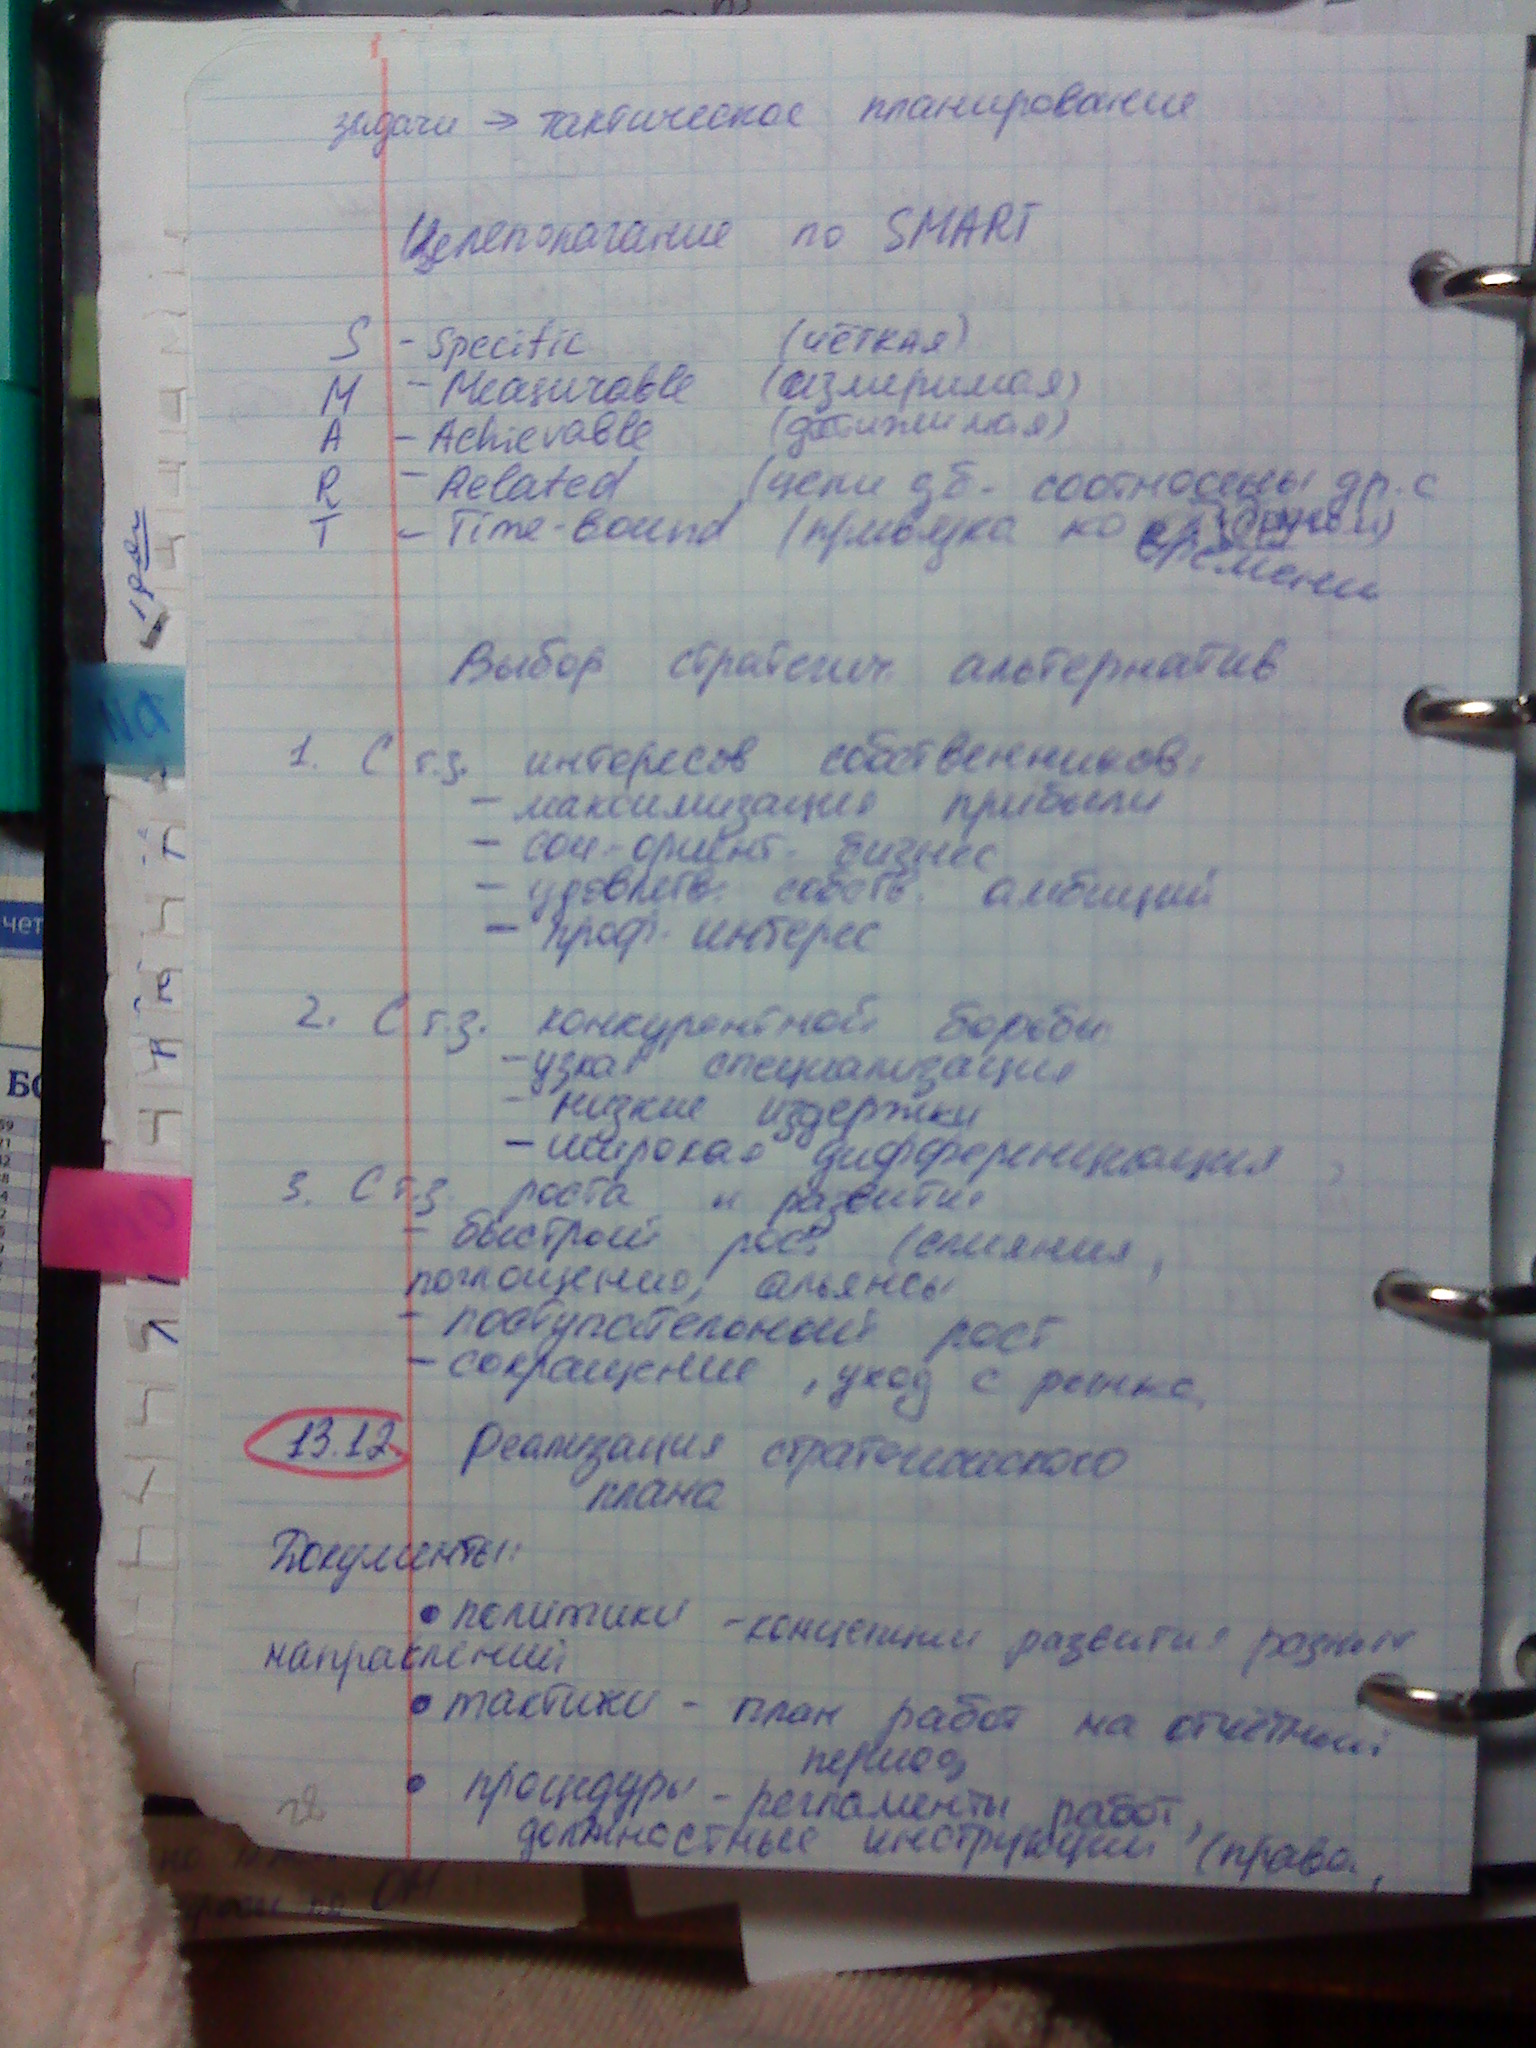 задачи → тактическое планирование
Целеполагание по SMART
S - Specific (чёткая)
M - Measurable (измеримая)
A - Achievable (достижимая)
R - Related (цели д.б. соотнесены др. с
другом)
T - Time-bound (привязка ко времени
Выбор стратегич. альтернатив
1. С т.з. интересов собственников:
- максимизация прибыли
- соц-ориент. бизнес
- удовлетв. собств. амбиций
- проф. интерес
2. С т.з. конкурентной борьбы
- узкая специализация
- низкие издержки
- широкая дифференциация
3. С т.з. роста и развития
- быстрый рост (слияния,
поглощения, альянсы
- поступательный рост
- сокращение, уход с рынка
13.12 Реализация стратегического
плана
Документы:
• политики - концепции развития разных
направлений
• тактики - план работ на отчётный
период
• процедуры - регламенты работ,
должностные инструкции (права,
28
чет